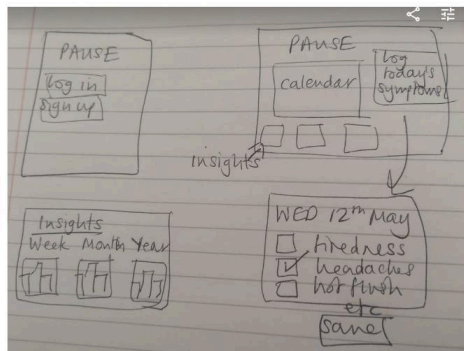 PAUSE
log in
sign up
PAUSE
calendar
log
todays
symptoms
insights
Insights
Week Month Year
WED 12th May
tiredness
headaches
hot flush
etc
save